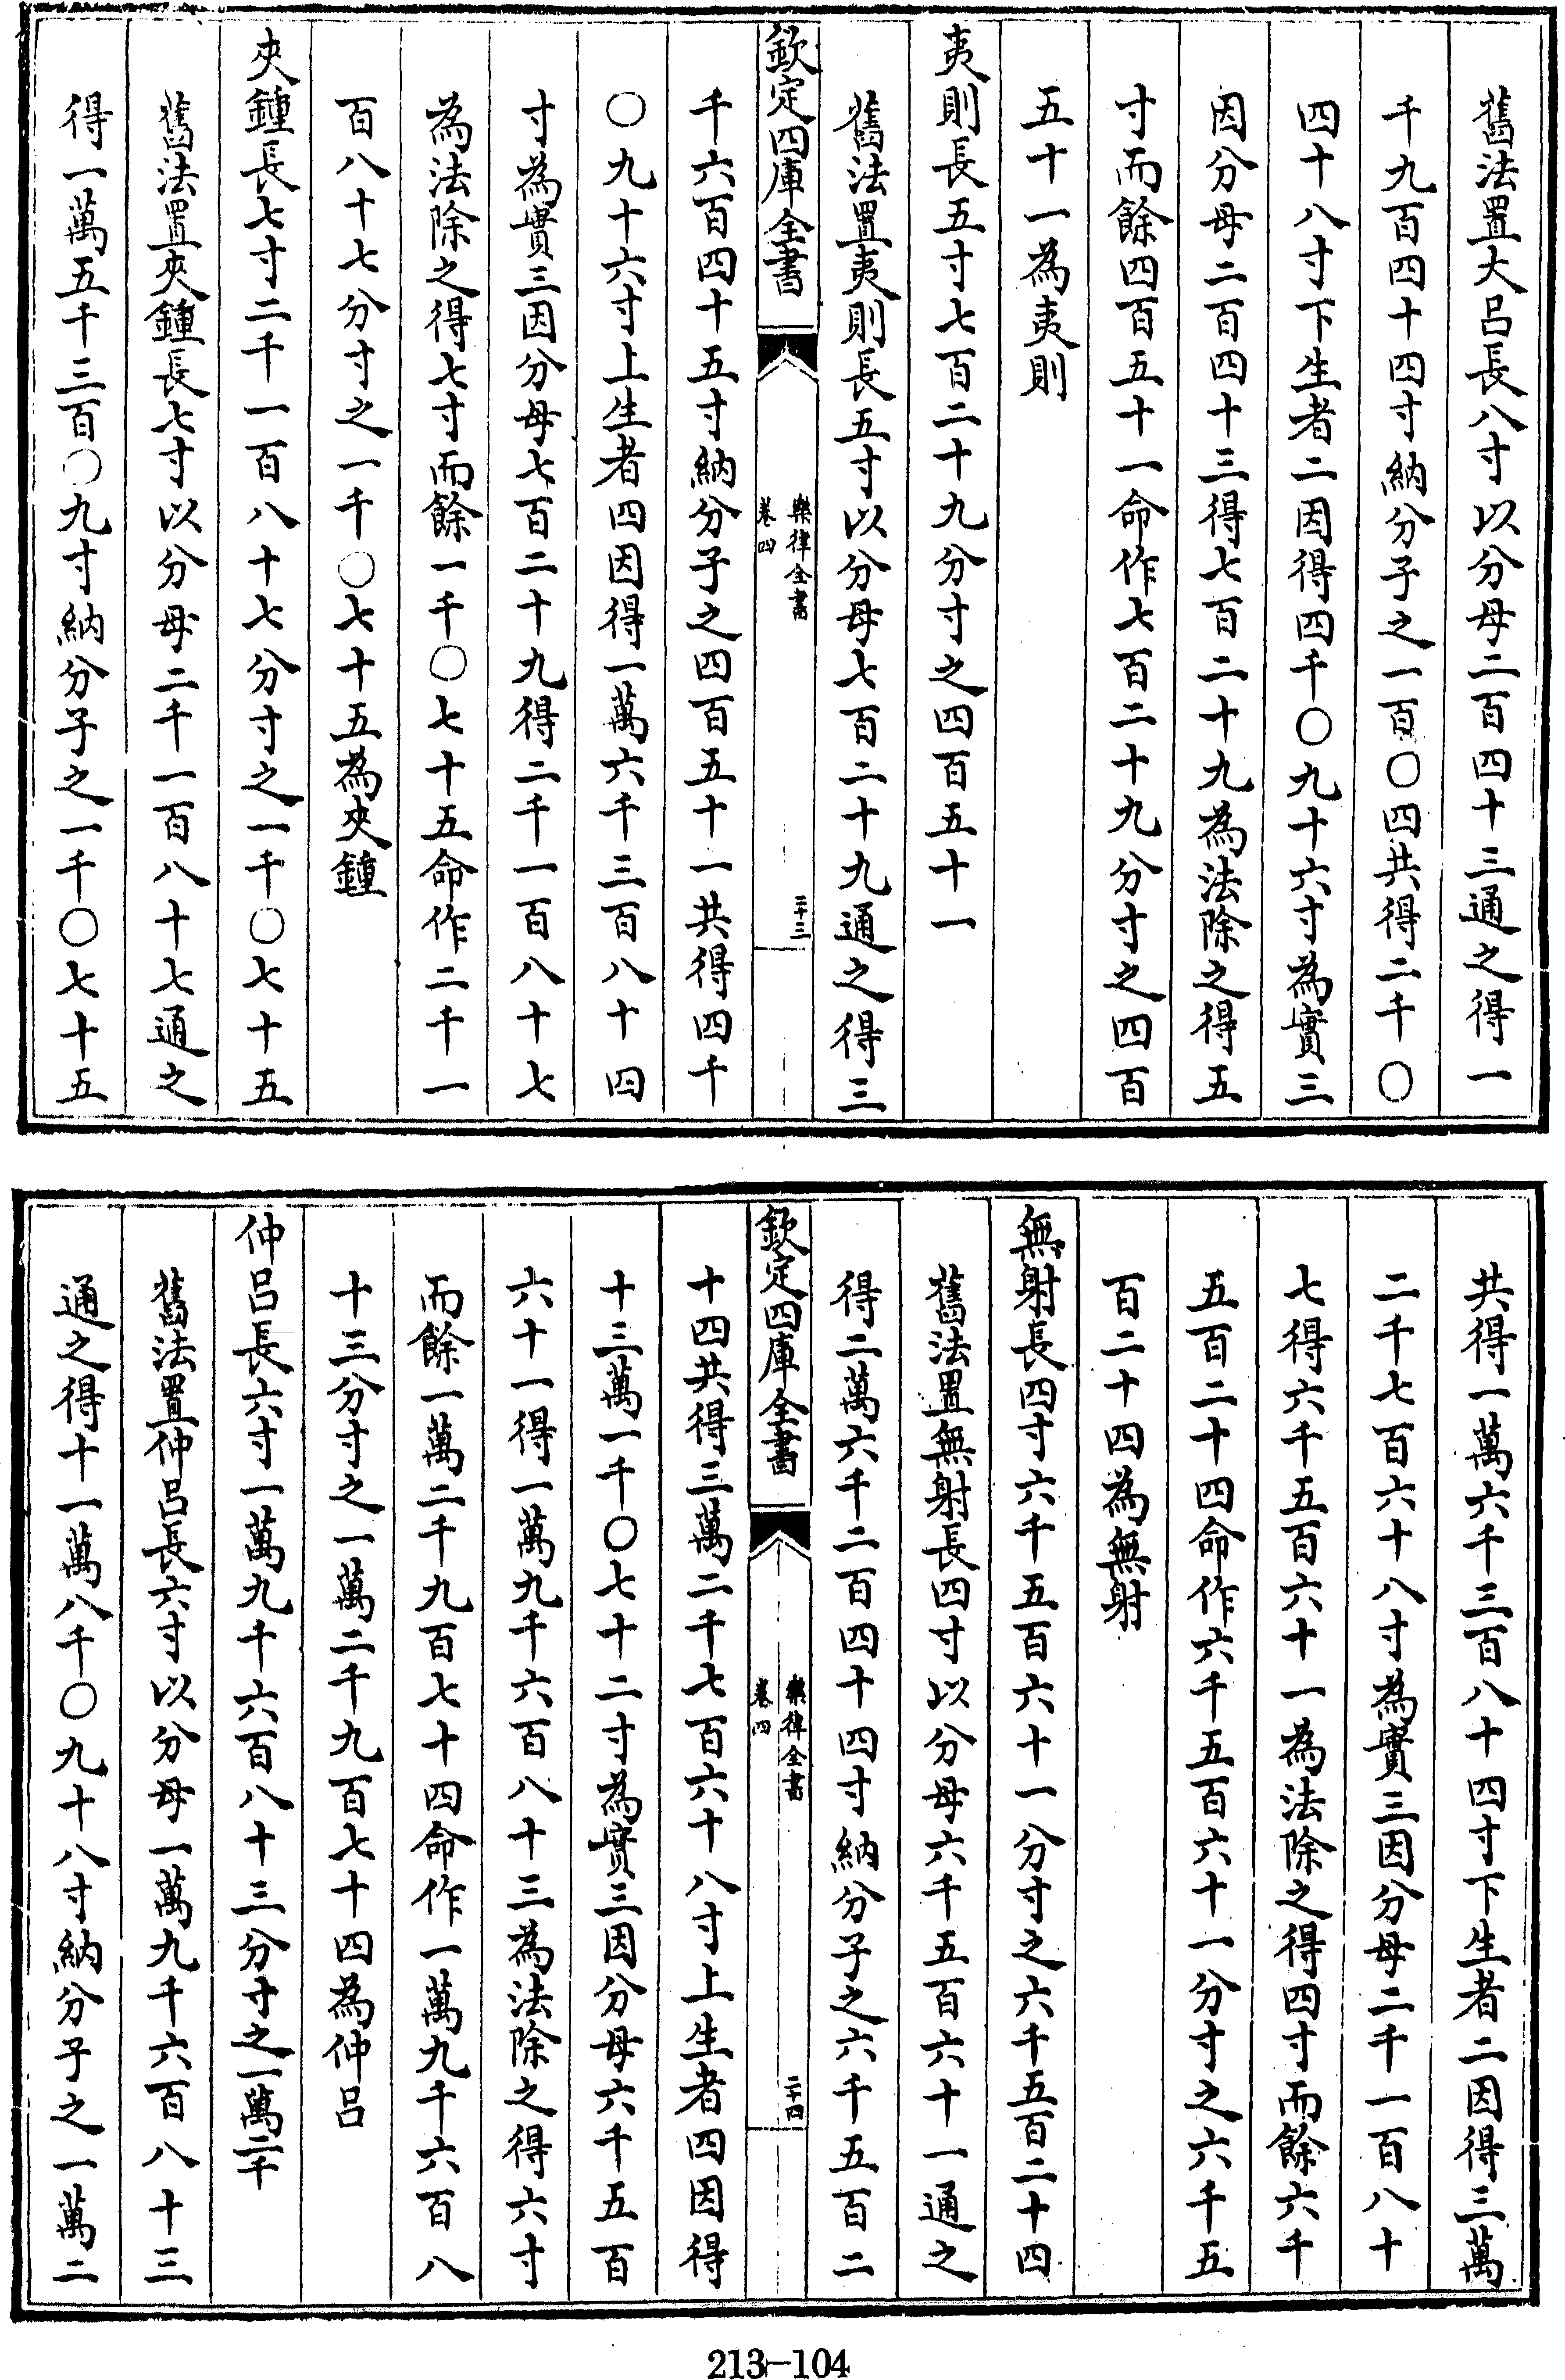 舊法置大呂長八寸以分母二百四十三通之得一
千九百四十四寸納分子之一百〇四共得二千〇
四十八寸下生者二因得四千〇九十六寸為實三
因分母二百四十三得七百二十九為法除之得五
寸而餘四百五十一命作七百二十九分寸之四百
五十一為夷則
夷則長五寸七百二十九分寸之四百五十一
舊法置夷則長五寸以分母七百二十九通之得三
欽定四庫全書
樂律全書
卷四
二十三
千六百四十五寸納分子之四百五十一共得四千
〇九十六寸上生者四因得一萬六千三百八十四
寸為實三因分母七百二十九得二千一百八十七
為法除之得七寸而餘一千〇七十五命作二千一
百八十七分寸之一千〇七十五為夾鐘
夾鐘長七寸二千一百八十七分寸之一千〇七十五
舊法置夾鐘長七寸以分母二千一百八十七通之
得一萬五千三百〇九寸納分子之一千〇七十五
共得一萬六千三百八十四寸下生者二因得三萬
二千七百六十八寸為實三因分母二千一百八十
七得六千五百六十一為法除之得四寸而餘六千
五百二十四命作六千五百六十一分寸之六千五
百二十四為無射
無射長四寸六千五百六十一分寸之六千五百二十四
舊法置無射長四寸以分母六千五百六十一通之
得二萬六千二百四十四寸納分子之六千五百二
欽定四庫全書
樂律全書
卷四
二十四
十四共得三萬二千七百六十八寸上生者四因得
十三萬一千〇七十二寸為實三因分母六千五百
六十一得一萬九千六百八十三為法除之得六寸
而餘一萬二千九百七十四命作一萬九千六百八
十三分寸之一萬二千九百七十四為仲呂
仲呂長六寸一萬九千六百八十三分寸之一萬二千
舊法置仲呂長六寸以分母一萬九千六百八十三
通之得十一萬八千〇九十八寸納分子之一萬二
213-104